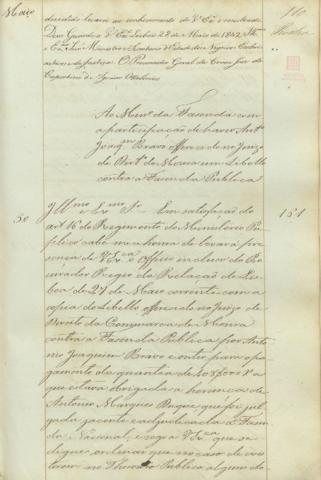 Maio
decidido levar ao conhecimento de V. Exª o resultado.
Deus Guarde a V. Exª Lisboa 28 de Maio de 1842. Illmo
e Exmo Snr Ministro e Secretario d'Estado dos Negocios Ecclesi-
asticos e de Justiça. O Procurador Geral da Coroa
de Cupertino d'Aguiar Ottolini
Ao Minº da Fazenda com
a participação de haver Antº
Joaqm Bravo offerecido no Juizo
de Dirtº de Moura um Libello
contra a Fazenda Publica
30
151
Illmo e Exmo Sr Em satisfação do
artº 16 do Regimento do Ministerio Pu-
blico cabe-me a honra de levar á pre-
sença de V. Exª o Officio incluso do Pro-
curador Regio da Relação de Lis-
boa de 27 de Maio corrente com a
copia do Libello offerecido no Juizo de
Direito da Commarca de Moura
contra a Fazenda Publica por Anto-
nio Joaquim Bravo e outro, para o pa-
gamento da quantia de
que estava obrigada a herança de
Antonio Marques Duque que foi jul-
gada jacente e adjudicada á Fazen-
da Nacional, e rogo a V. Exª que se
digne ordenar que no caso de exis-
tirem no Thesouro Publico alguns do